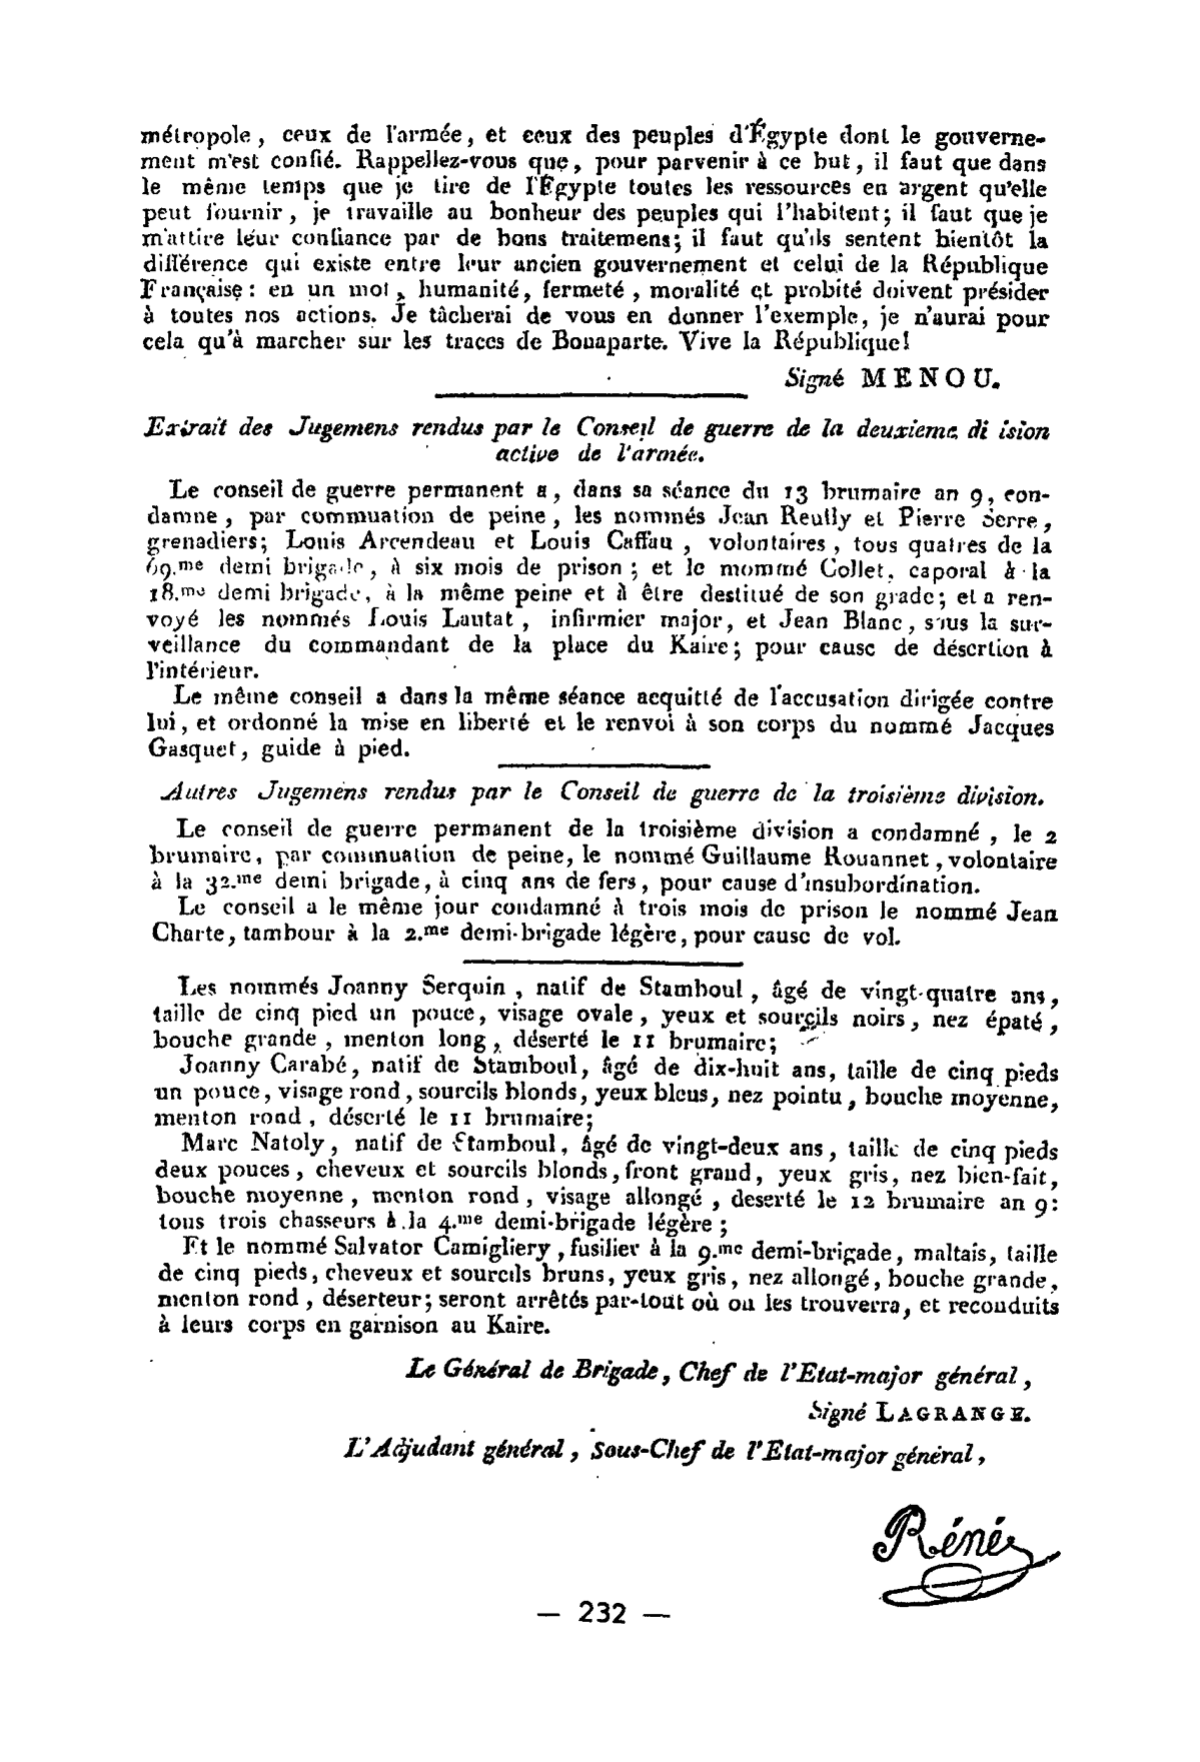 métropole, ceux de l'armée, et ceux des peuples d'Égypte dont le gouverne-
ment m'est confié. Rappellez-vous que, pour parvenir à ce but, il faut que dans
le même temps que je tire de l'Égypte toutes les ressources en argent qu'elle
peut fournir, je travaille au bonheur des peuples qui l'habitent; il faut que je
m'attire leur confiance par de bons traitemens; il faut qu'ils sentent bientôt la
différence qui existe entre leur ancien gouvernement et celui de la République
Française: en un mot, humanité, fermeté, moralité et probité doivent présider
à toutes nos actions. Je tâcherai de vous en donner l'exemple, je n'aurai pour
cela qu'à marcher sur les traces de Bonaparte. Vive la République!
Signé MENOU.
Extrait des Jugemens rendus par le Conseil de guerre de la deuxieme di ision
active de l'armée.
Le conseil de guerre permanent a, dans sa séance du 13 brumaire an 9, con-
damne, par commuation de peine, les nommés Jean Reully et Pierre Serre,
grenadiers; Louis Arcendeau et Louis Caffau, volontaires, tous quatres de la
69.me demi brigade, à six mois de prison; et le mommé Collet, caporal à la
18.me demi brigade, à la même peine et à être destitué de son grade; et a ren-
voyé les nommés Louis Lautat, infirmier major, et Jean Blanc, sous la sur-
veillance du commandant de la place du Kaire; pour cause de désertion à
l'intérieur.
Le même conseil a dans la même séance acquitté de l'accusation dirigée contre
lui, et ordonné la mise en liberté et le renvoi à son corps du nommé Jacques
Gasquet, guide à pied.
Autres Jugemens rendus par le Conseil de guerre de la troisième division.
Le conseil de guerre permanent de la troisième division a condamné, le 2
brumaire, par commuation de peine, le nommé Guillaume Rouannet, volontaire
à la 32.me demi brigade, à cinq ans de fers, pour cause d'insubordination.
Le conseil a le même jour condamné à trois mois de prison le nommé Jean
Charte, tambour à la 2.me demi-brigade légère, pour cause de vol.
Les nommés Joanny Serquin, natif de Stamboul, âgé de vingt-quatre ans,
taille de cinq pied un pouce, visage ovale, yeux et sourcils noirs, nez épaté,
bouche grande, menton long, déserté le 11 brumaire;
Joanny Carabé, natif de Stamboul, âgé de dix-huit ans, taille de cinq pieds
un pouce, visage rond, sourcils blonds, yeux bleus, nez pointu, bouche moyenne,
menton rond, déserté le 11 brumaire;
Marc Natoly, natif de Stamboul, âgé de vingt-deux ans, taille de cinq pieds
deux pouces, cheveux et sourcils blonds, front grand, yeux gris, nez bien-fait,
bouche moyenne, menton rond, visage allongé, deserté le 12 brumaire an 9:
tous trois chasseurs à la 4.me demi-brigade légère;
Et le nommé Salvator Camigliery, fusilier à la 9.me demi-brigade, maltais, taille
de cinq pieds, cheveux et sourcils bruns, yeux gris, nez allongé, bouche grande,
menton rond, déserteur; seront arrêtés par-tout où on les trouverra, et reconduits
à leurs corps en garnison au Kaire.
Le Général de Brigade, Chef de l'Etat-major général,
Signé LAGRANGE.
L'Adjudant général, Sous-Chef de l'Etat-major général,
Réné
— 232 —